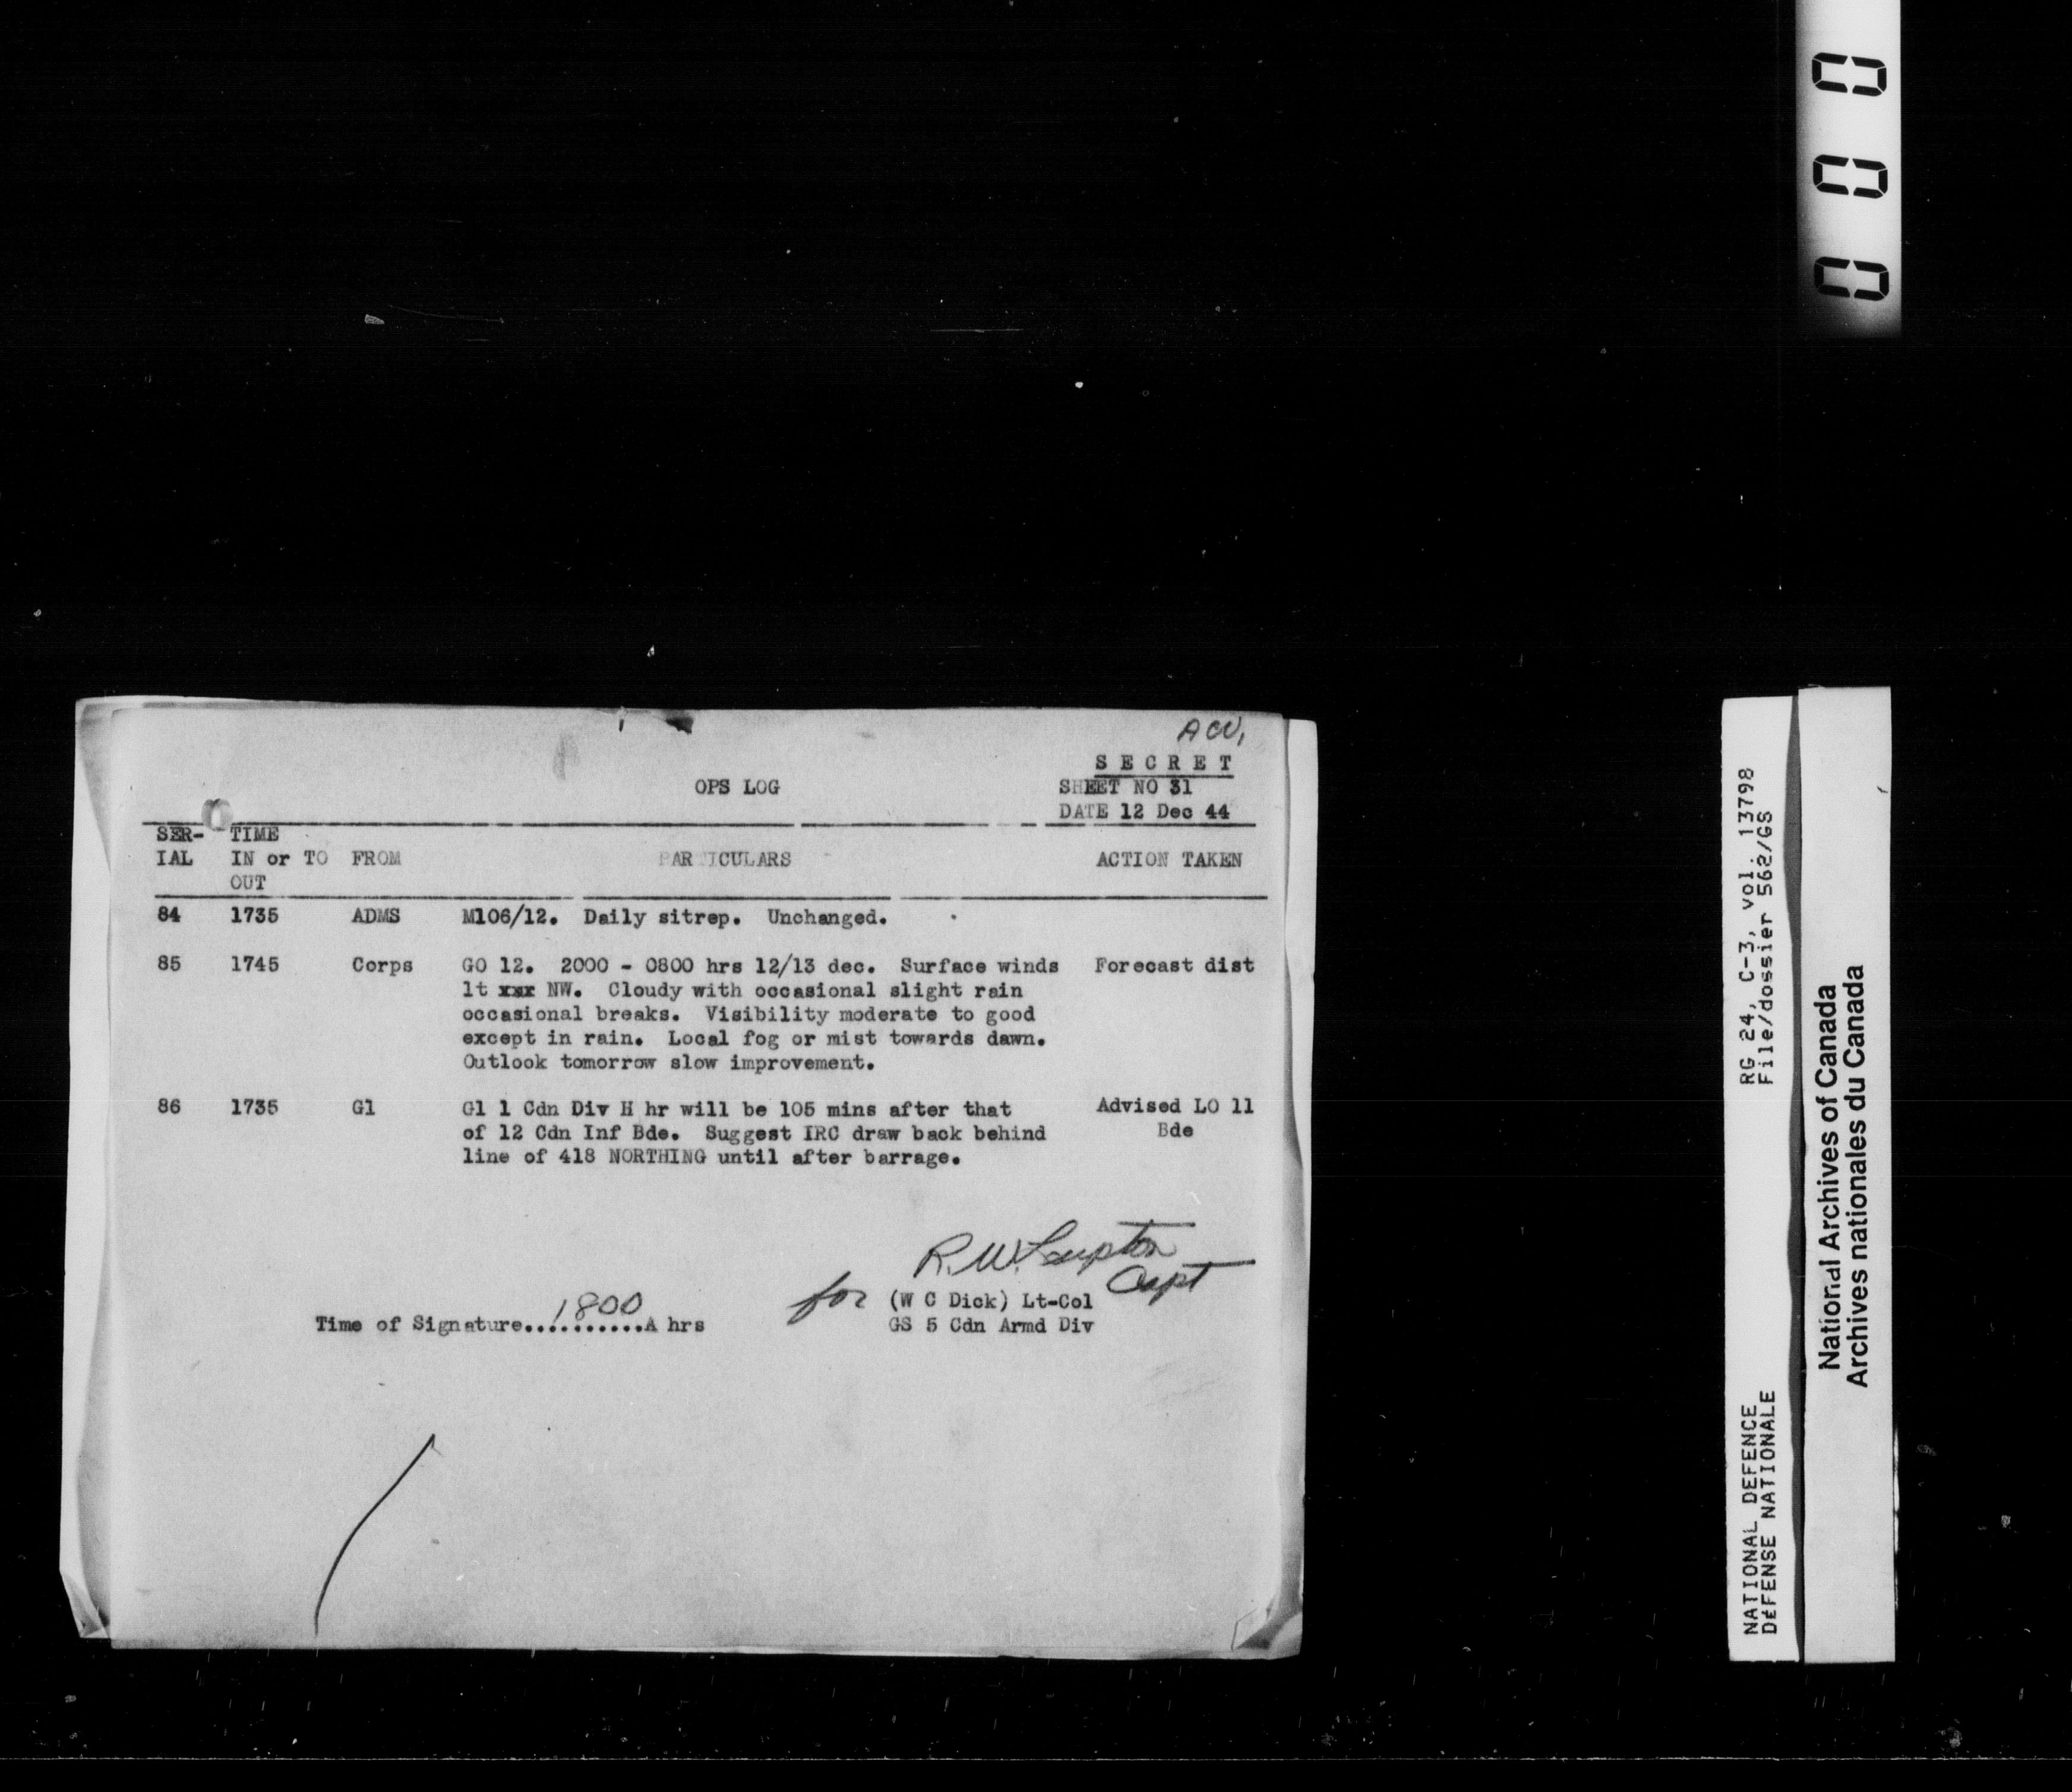 000
ACW,
S E C R E T
OPS LOG
SHEET NO 31
DATE 12 Dec 44
SER- TIME
IAL IN or TO FROM PARTICULARS ACTION TAKEN
OUT
84 1735 ADMS M106/12. Daily sitrep. Unchanged.
85 1745 Corps GO 12. 2000 - 0800 hrs 12/13 dec. Surface winds Forecast dist
lt xxx NW. Cloudy with occasional slight rain
occasional breaks. Visibility moderate to good
except in rain. Local fog or mist towards dawn.
Outlook tomorrow slow improvement.
86 1735 G1 G1 1 Cdn Div H hr will be 105 mins after that Advised LO 11
of 12 Cdn Inf Bde. Suggest IRC draw back behind Bde
line of 418 NORTHING until after barrage.
R.W. Capt
for (W C Dick) Lt-Col
Time of Signature....1800....A hrs GS 5 Cdn Armd Div
NATIONAL DEFENCE RG 24, C-3, vol. 13798
DéFENSE NATIONALE File/dossier 562/GS
National Archives of Canada
Archives nationales du Canada